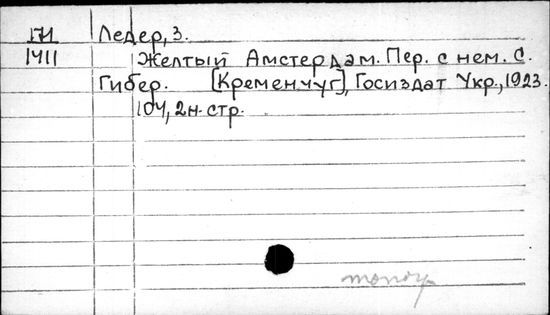 Ледер, З.
1411 Желтый Амстердам. Пер. с нем. С.
Гибер. [Кременчуг], Госиздат Укр., 1923.
104, 2н. стр.